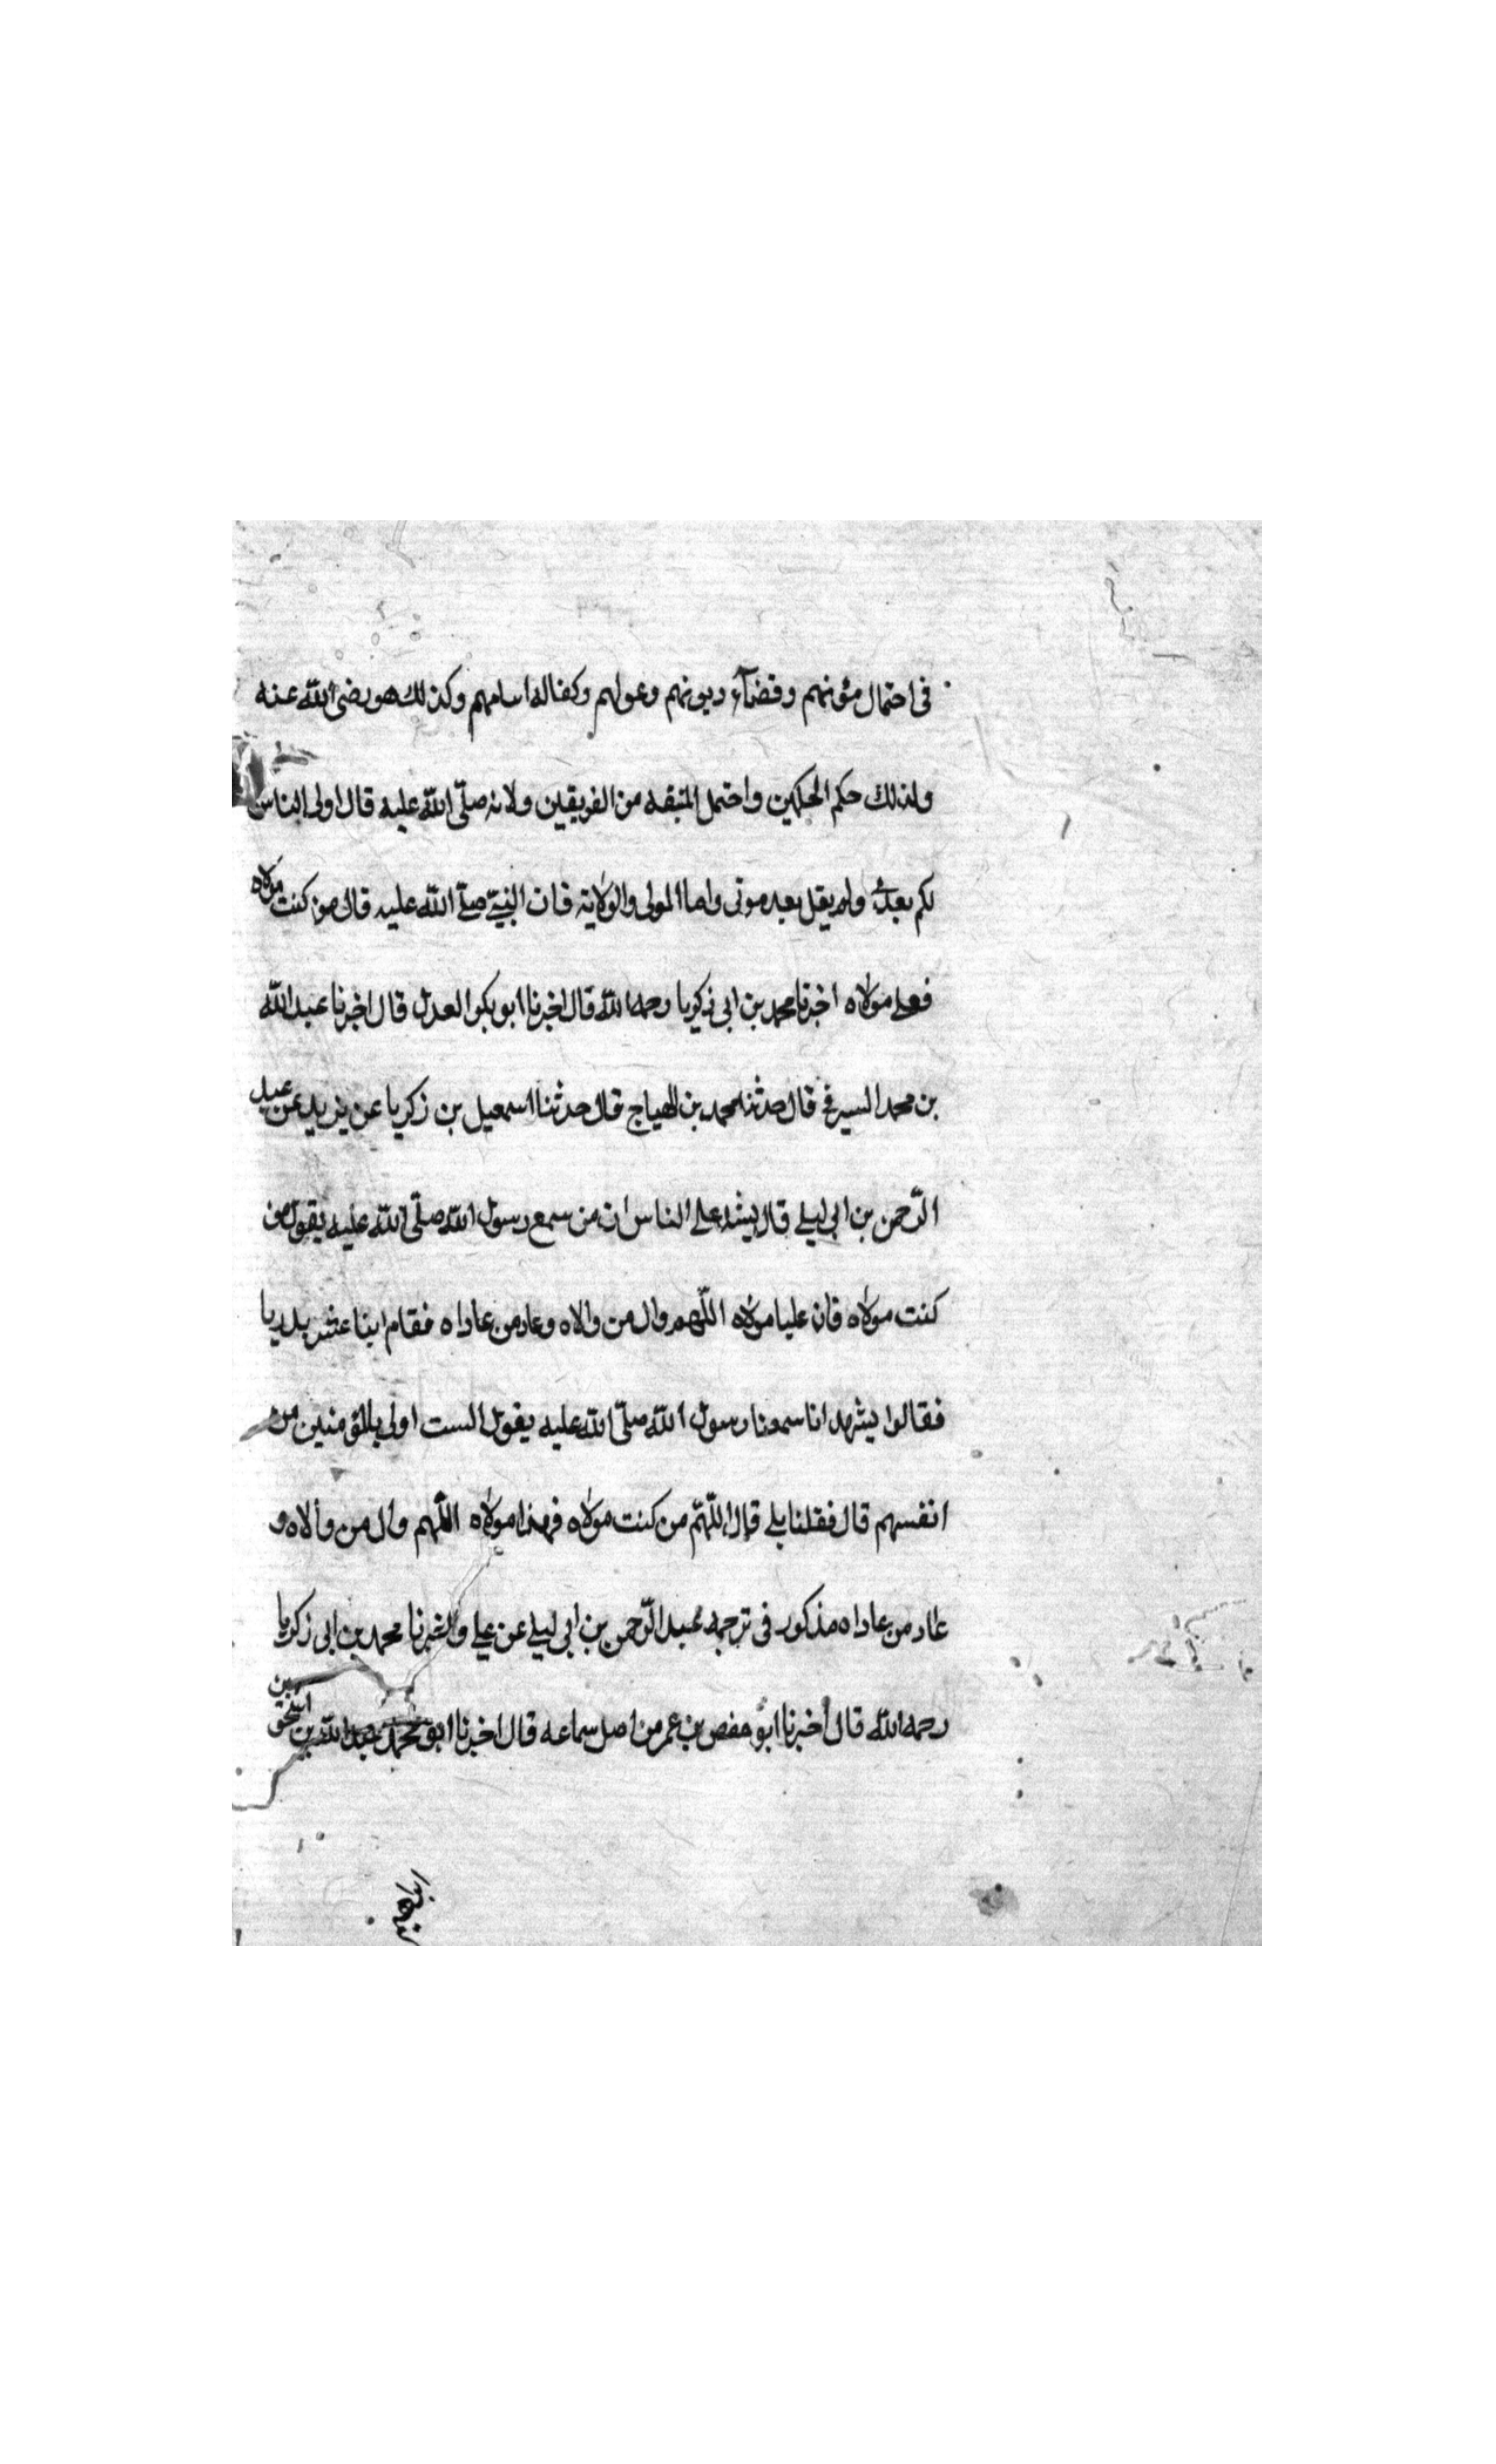 فى احتمال مئونهم وقضآء ديونهم وعولهم وكفاله اسامهم وكذلك هو رضى الله عنه
ولذلك حكم الحكمين واحتمل المتبقه من الفريقين ولانه صلّى الله عليه قال اولى الناس
لكم بعدى ولم يقل بعد موتى واما المولى والولاية فان النبىّ صلّى الله عليه قال من كنت مولاه
فعلى مولاه اخبرنا محمد بن ابى زكريا رحمه الله قال اخبرنا ابو بكر العدل قال اخبرنا عبد الله
بن محمد السيرفى قال حدثنا محمد بن الهياج قال حدثنا اسمعيل بن زكريا عن يزيد عن عبد
الرّحمن بن ابى ليلى قال ينشد على الناس ان من سمع رسول الله صلّى الله عليه يقول من
كنت مولاه فان عليا مولاه اللّهم وال من والاه وعاد من عاداه فقام اثنا عشر بدريا
فقالوا يشهد انا سمعنا رسول الله صلّى الله عليه يقول الست اولى بالمؤمنين من
انفسهم قال فقلنا بلى قال اللّهمّ من كنت مولاه فهذا مولاه اللّهم وال من والاه و
عاد من عاداه مذكور فى ترجمه عبد الرّحمن بن ابى ليلى عن على واخبرنا محمد بن ابى زكريا
رحمه الله قال أخبرنا ابو حفص بن عمر من اصل سماعه قال اخبرنا ابو محمد عبد الله بن اسحق بن
ابراهيم